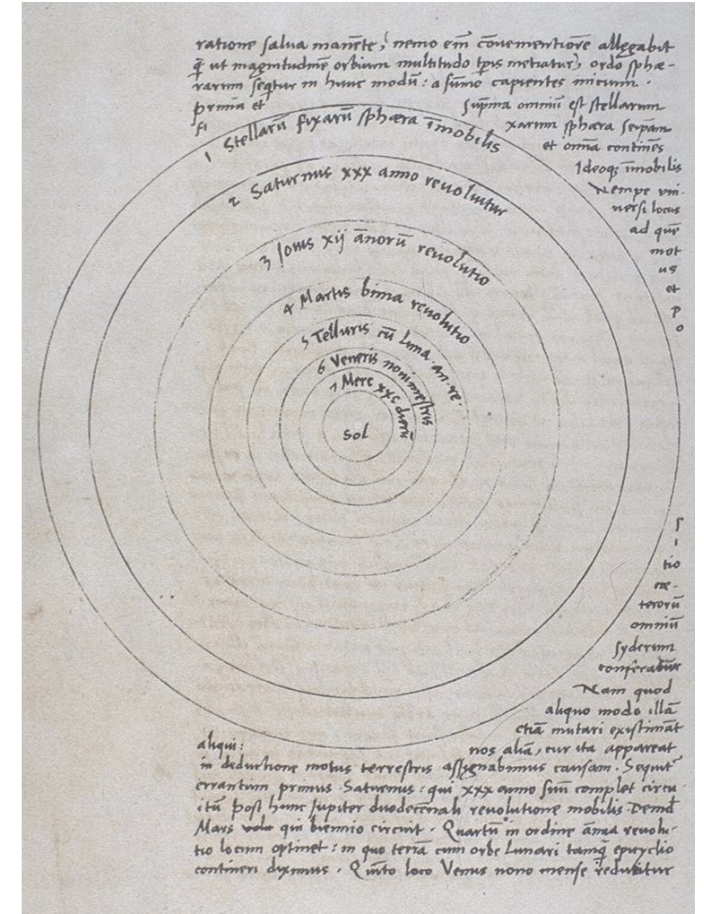 ratione salua manēte, nemo em̄ cōuenientiorē allegabit
q̄ ut magnitudinē orbium multitudo tp̄is metiatur, ordo sphæ-
rarum seq̄tur in hunc modū: a sūmo capientes inicium.
prima et sup̄ma omniū est stellarum
fi xarum sphæra seipam
et omīa continēs
Ideoq̄ īmobilis
Nempe vni-
uersi locus
ad quē
mot
us
et
p
o
1 Stellarū fixarū sphæra īmobilis
2 Saturnus xxx anno reuoluitur
3 Jouis xij ānorū reuolutio
4 Martis bima reuolutio
5 Telluris cū Luna an. re.
6 Veneris nonimestris
7 Merc xxc dierū
Sol
s
i
tio
cæ-
terorū
omniū
syderum
conferatur
Nam quod
aliquo modo illā
etiā mutari existimāt
aliqui: nos aliā, cur ita appareat
in deductione motus terrestris assignabimus causam. Sequit̄
errantium primus Saturnus: qui xxx anno suū complet circu
itū post hunc Jupiter duodecennali reuolutione mobilis. Demd̄
Mars qui biennio circuit. Quartū in ordine annua reuolu-
tio locum optinet: in quo terrā cum orbe Lunari tamq̄ epicyclio
contineri diximus. Quīto loco Venus nono mense reducitur